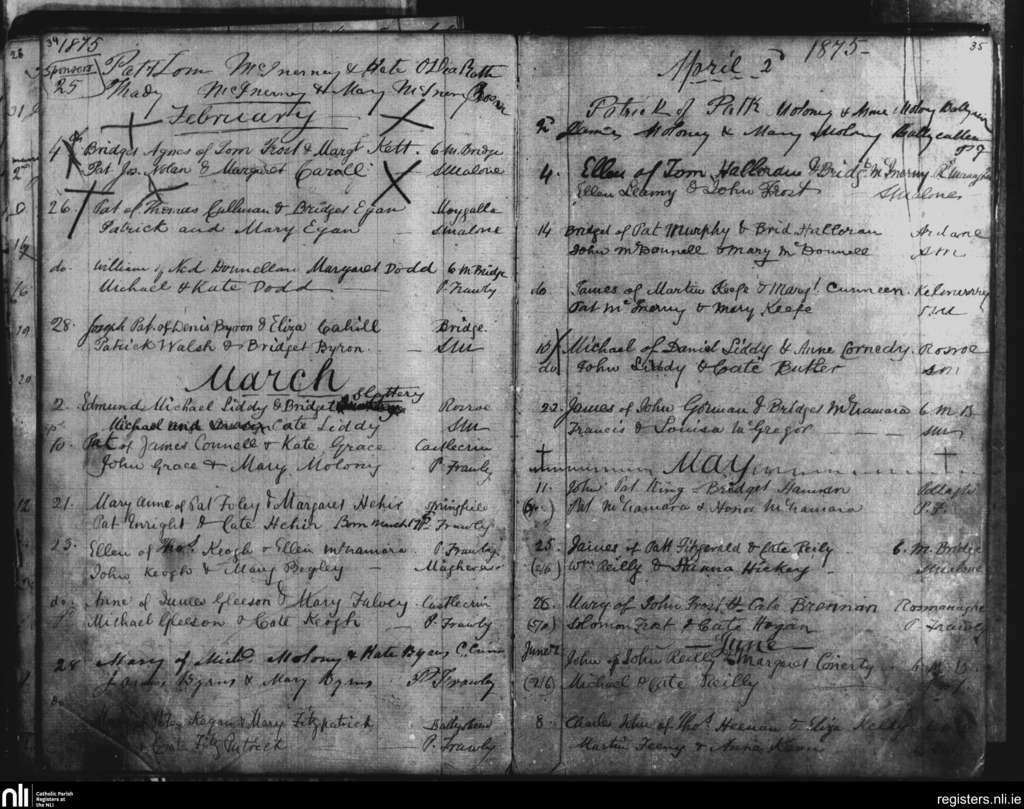 34 1875
Sponsors Patt Tom McInerney & Kate O'Dea Rath
25 Thady McInerny & Mary McInerny Rosroe
February
4 Bridget Agnes of Tom Frost & Margt Kett. 6 M. Bridge
Pat Jos. Nolan & Margaret Caroll SMalone
26. Pat of Thomas Cullinan & Bridget Egan Moygalla
Patrick and Mary Egan — SMalone
do. William of Ned Donnellan Margaret Dodd 6 M Bridge
Michael & Kate Dodd — P. Frawly
28. Joseph Pat. of Denis Byron & Eliza Cahill Bridge.
Patrick Walsh & Bridget Byron. — SM
March
2. Edmund Michael Liddy & Bridget Slattery Rosroe
Michael and Cate Liddy SM
10. Pat of James Connell & Kate Grace Castlecrin
John Grace & Mary Molony P. Frawly
21. Mary Anne of Pat Foley & Margaret Hehir Springfield
Pat Enright & Cate Hehir Born March P. Frawly
23. Ellen of Thos. Keogh & Ellen McNamara P. Frawly.
John Keogh & Mary Begley —
do. Anne of James Gleeson & Mary Falvey. Castlecrin
Michael Gleeson & Cate Keogh — P. Frawly.
28 Mary of Mich. Molony & Kate Byrns
James Byrns & Mary Byrns P Frawly
do
Kegan & Mary Fitzpatrick
& Cate Fitzpatrick — P. Frawly
35
1875-
April 2d
Patrick of Patk Moloney & Anne Molony
2d James Moloney & Mary Molony
4. Ellen of Tom Halloran & Bridg. McInerny
Ellen Leamy & John Frost SMalone
14 Bridget of Pat Murphy & Brid Halloran Ardane
John McDonnell & Mary McDonnell SM
do James of Martin Keefe & Margt. Cunneen.
Pat McInerny & Mary Keefe SM
10 Michael of Daniel Liddy & Anne Cornedy. Rosroe
do John Liddy & Cate Butler SM
22. James of John Gorman & Bridget McNamara 6 M B
Francis & Louisa McGregor — SM
May
11. John Pat King - Bridget Hannon
Pat McNamara & Honor McNamara P. F.
25. James of Patt Fitzgerald & Cate Reily 6. M. Bridge
(2/6) Wm Reilly & Hanna Hickey - SMalone
26. Mary of John Frost & Cate Brennan Rosmanagher
(5/0) Solomon Frost & Cate Hogan P Frawly
June
June 2 John of John Reilly & Margaret Conerty 6 M B.
(2/6) Michael & Cate Reilly
8. Charles John of Thos. Heenan & Eliza Kelly
Martin Feeny & Anna
nli Catholic Parish
Registers at
the NLI
registers.nli.ie